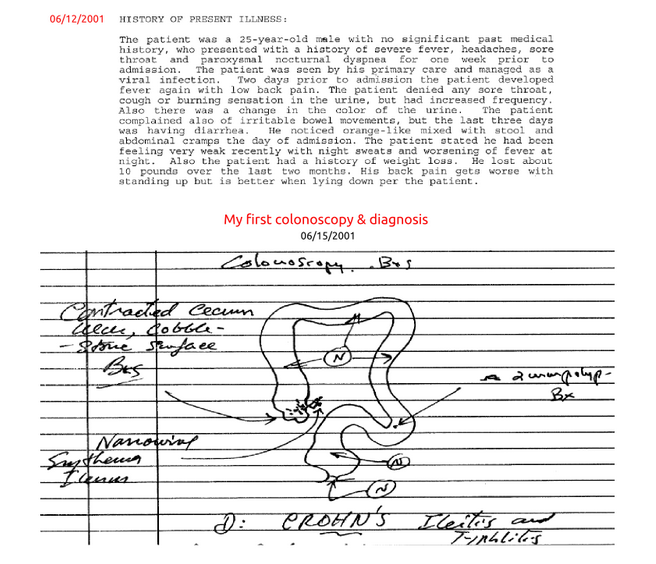 06/12/2001 HISTORY OF PRESENT ILLNESS:
The patient was a 25-year-old male with no significant past medical
history, who presented with a history of severe fever, headaches, sore
throat and paroxysmal nocturnal dyspnea for one week prior to
admission. The patient was seen by his primary care and managed as a
viral infection. Two days prior to admission the patient developed
fever again with low back pain. The patient denied any sore throat,
cough or burning sensation in the urine, but had increased frequency.
Also there was a change in the color of the urine. The patient
complained also of irritable bowel movements, but the last three days
was having diarrhea. He noticed orange-like mixed with stool and
abdominal cramps the day of admission. The patient stated he had been
feeling very weak recently with night sweats and worsening of fever at
night. Also the patient had a history of weight loss. He lost about
10 pounds over the last two months. His back pain gets worse with
standing up but is better when lying down per the patient.
My first colonoscopy & diagnosis
06/15/2001
Colonoscopy. Bxs
Contracted Cecum
Ulcer, Cobble-
- Stone Surface
Bxs
N
2 mm polyp-
Bx
Narrowing
Erythema
Ileum
N
N
D: CROHN'S Ileitis and
Typhlitis